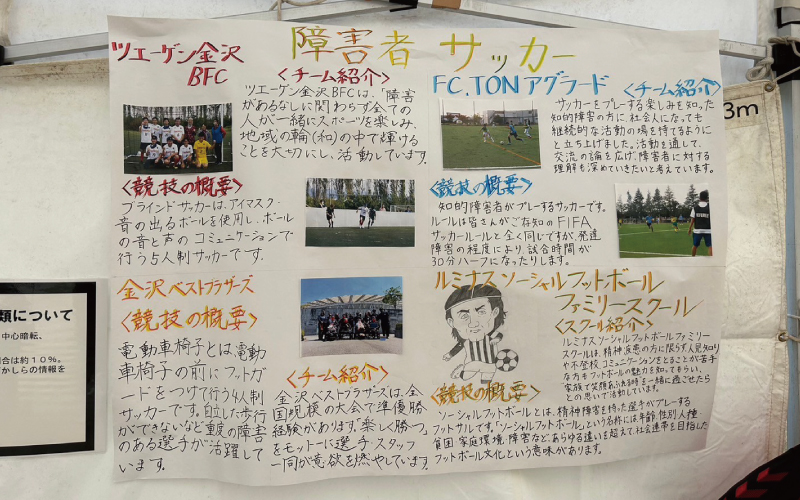 障害者 サッカー
ツエーゲン金沢
BFC
<チーム紹介>
ツエーゲン金沢BFCは、「障害
があるなしに関わらず全ての
人が一緒にスポーツを楽しみ、
地域の輪(和)の中で輝ける
ことを大切にし、活動しています。
<競技の概要>
ブラインドサッカーは、アイマスク・
音の出るボールを使用し、ボール
の音と声のコミュニケーションで
行う5人制サッカーです。
FC.TONアグラード
<チーム紹介>
サッカーをプレーする楽しみを知った
知的障害の方に、社会人になっても
継続的な活動の場を持てるように
と立ち上げました。活動を通して、
交流の論を広げ、障害者に対する
理解も深めていきたいと考えています。
<競技の概要>
知的障害者がプレーするサッカーです。
ルールは皆さんがご存知のFIFA
サッカールールと全く同じですが、発達
障害の程度により、試合時間が
30分ハーフになったりします。
金沢ベストブラザーズ
<競技の概要>
電動車椅子とは、電動
車椅子の前にフットガ
ードをつけて行う4人制
サッカーです。自立した歩行
ができないなど重度の障害
のある選手が活躍して
います。
<チーム紹介>
金沢ベストブラザーズは、全
国規模の大会で準優勝
経験があります。「楽しく勝つ」
をモットーに選手、スタッフ
一同が意欲を燃やしています。
ルミナスソーシャルフットボール
ファミリースクール
<スクール紹介>
ルミナスソーシャルフットボールファミリー
スクールは、精神疾患の方に限らず人見知り
や不登校、コミュニケーションをとることが苦手
な方もフットボールの魅力を知ってもらい、
家族で笑顔あふれる時を一緒に過ごせたら
との思いで活動しています。
<競技の概要>
ソーシャルフットボールとは、精神障害を持った選手がプレーする
フットサルです。「ソーシャルフットボール」という名称には年齢、性別、人種・
貧困、家庭環境、障害など、あらゆる違いを超えて、社会連帯を目指した
フットボール文化という意味があります。
3m
類について
中心暗転、
合は約10%。
かしらの情報を